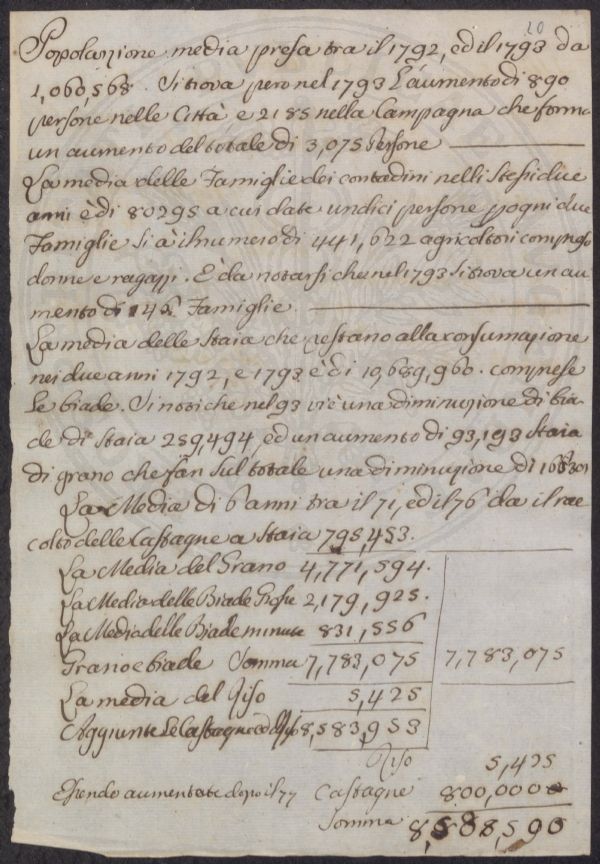 20
Popolazzione media presa tra il 1792, ed il 1793 da
1,060,568. Si trova però nel 1793 l'aumento di 890
persone nelle Città e 2185 nella Campagna che forma
un aumento del totale di 3,075 Persone
La media delle Famiglie dei contadini nelli stessi due
anni è di 80295 a cui date undici persone p ogni due
Famiglie si à il numero di 441,622 agricoltori
donne e ragazzi. È da notarsi che nel 1793 si trova un au
mento di Famiglie.
La media delle Staia che restano alla consumazione
nei due anni 1792, e 1793 è di 10,689,960. comprese
le biade. Si noti che nel 93 vi è una diminuzione di bia
de di Staia 259,494, ed un aumento di 93,193 Staia
di grano che fan sul totale una diminuzione di
La Media di 6 anni tra il 71, ed il 76 da il rac
colto delle Castagne a Staia 795,453.
La Media del Grano 4,771,594.
La Media delle Biade Grosse 2,179,925.
La Media delle Biade minute 831,556
Grano e biade Somma 7,783,075 7,783,075
La media del Riso 5,425
Aggiunte le Castagne ed il Riso 8,583,953
Riso 5,425
Essendo aumentate dopo il 77 Castagne 800,000
Somma 8,588,500